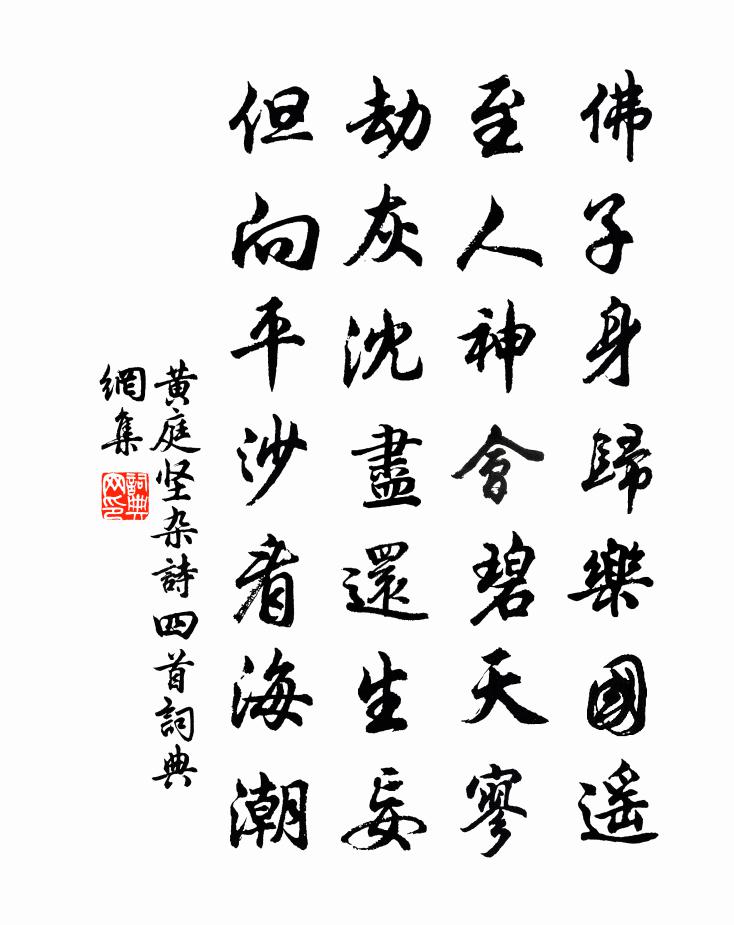 佛子身歸樂國遥
至人神會碧天寥
劫灰沈盡還生妄
但向平沙看海潮
黄庭坚杂詩四首詞典
網集
詞典網印